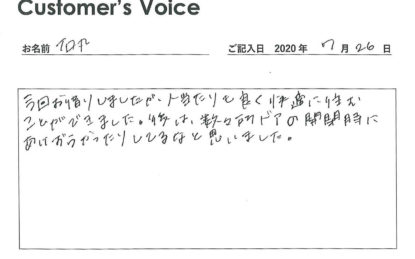 Customer's Voice
お名前 ご記入日 2020年 7月 26日
今回お借りしましたが、人当たりも良く快適に住む
ことができました。後は、数ヶ所ドアの開閉時に
しているなと思いました。